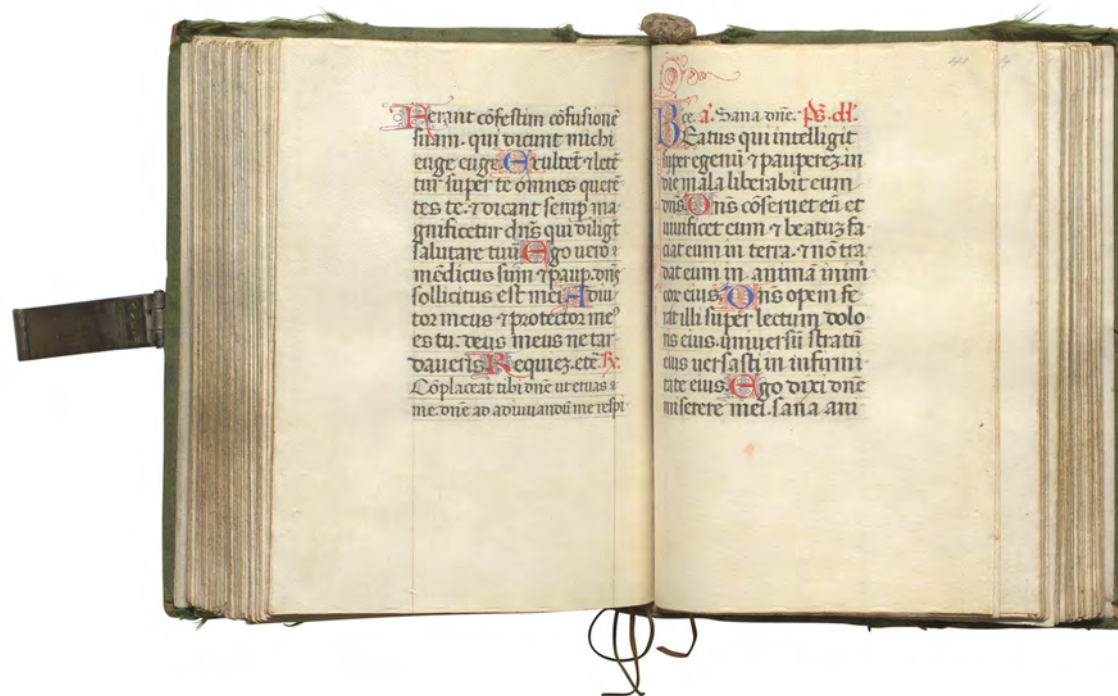 Ferant cōfestim cōfusionē
suam. qui dicunt michi
euge euge. Exultēt ⁊ letē
tur super te omnes querē
tes te. ⁊ dicant semp ma
gnificetur dn̄s qui diligt̄
salutare tuū. Ego uero
mēdicus sum ⁊ paup. dn̄s
sollicitus est mei. Adiu
tor meus ⁊ protector meꝰ
es tu: deus meus ne tar
daueris. Requiez. etē. ℟.
Cōplaceat tibi dn̄e ut eruas
me. dn̄e ad adiuuandū me respi
ce. a᷑. Sana dn̄e. Ps̄.
Beatus qui intelligit
super egenū ⁊ pauperez. in
die mala liberabit eum
dn̄s. Dn̄s cōseruet eū et
uiuificet eum ⁊ beatuz fa
ciat eum in terra. ⁊ nō tra
dat eum in animā inimi
cor eius. Dn̄s opem fe
rat illi super lectum dolo
ris eius. uniuersū stratū
eius uersasti in infirmi
tate eius. Ego dixi dn̄e
miserere mei. sana ani